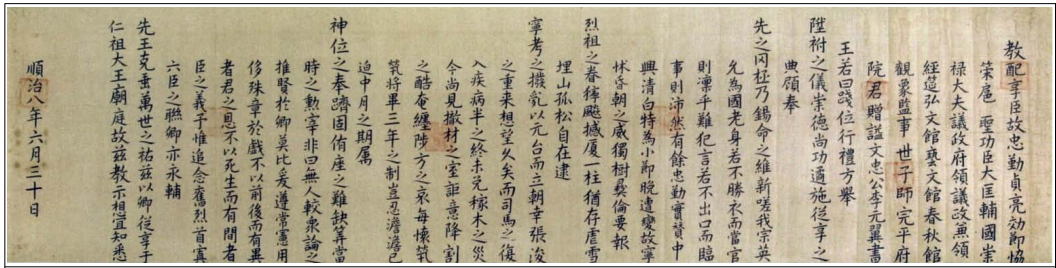 教配享臣故忠勤貞亮効節協
策扈聖功臣大匡輔國崇
祿大夫議政府領議政兼領
經筵弘文館藝文館春秋館
觀象監事世子師完平府
院君贈諡文忠公李元翼書
王若曰踐位行禮方舉
陞祔之儀崇德尚功遹施從享之
典顧奉
先之罔極乃錫命之維新嗟我宗英
允為國老身若不勝衣而當官
則凜乎難犯言若不出口而臨
事則沛然有餘忠勤實贊中
興清白特為小節晚遭變故寧
怵昏朝之威獨樹彝倫要報
烈祖之眷獰颷撼厦一柱猶存虐雪
埋山孤松自在逮
寧考之撥亂以元台而立朝幸張浚
之重来想望久矣而司馬之復
入疾病半之終未兑稼木之災
今尚見撤材之室詎意降割
之酷奄纏陟方之哀每懷筑
筑將畢三年之制豈忍澹澹已
迫中月之期属
神位之奉躋固侑座之難缺筭當
時之勲宰非曰無人較衆論之
推賢於卿莫比爰遵常憲用
侈殊章於戲不以前後而有異
者君之息不以死生而有間者
臣之義予惟追念舊烈首寘
六臣之聮卿亦永輔
先王克垂萬世之祐茲以卿從享于
仁祖大王廟庭故茲教示想宜知悉
順治八年六月三十日